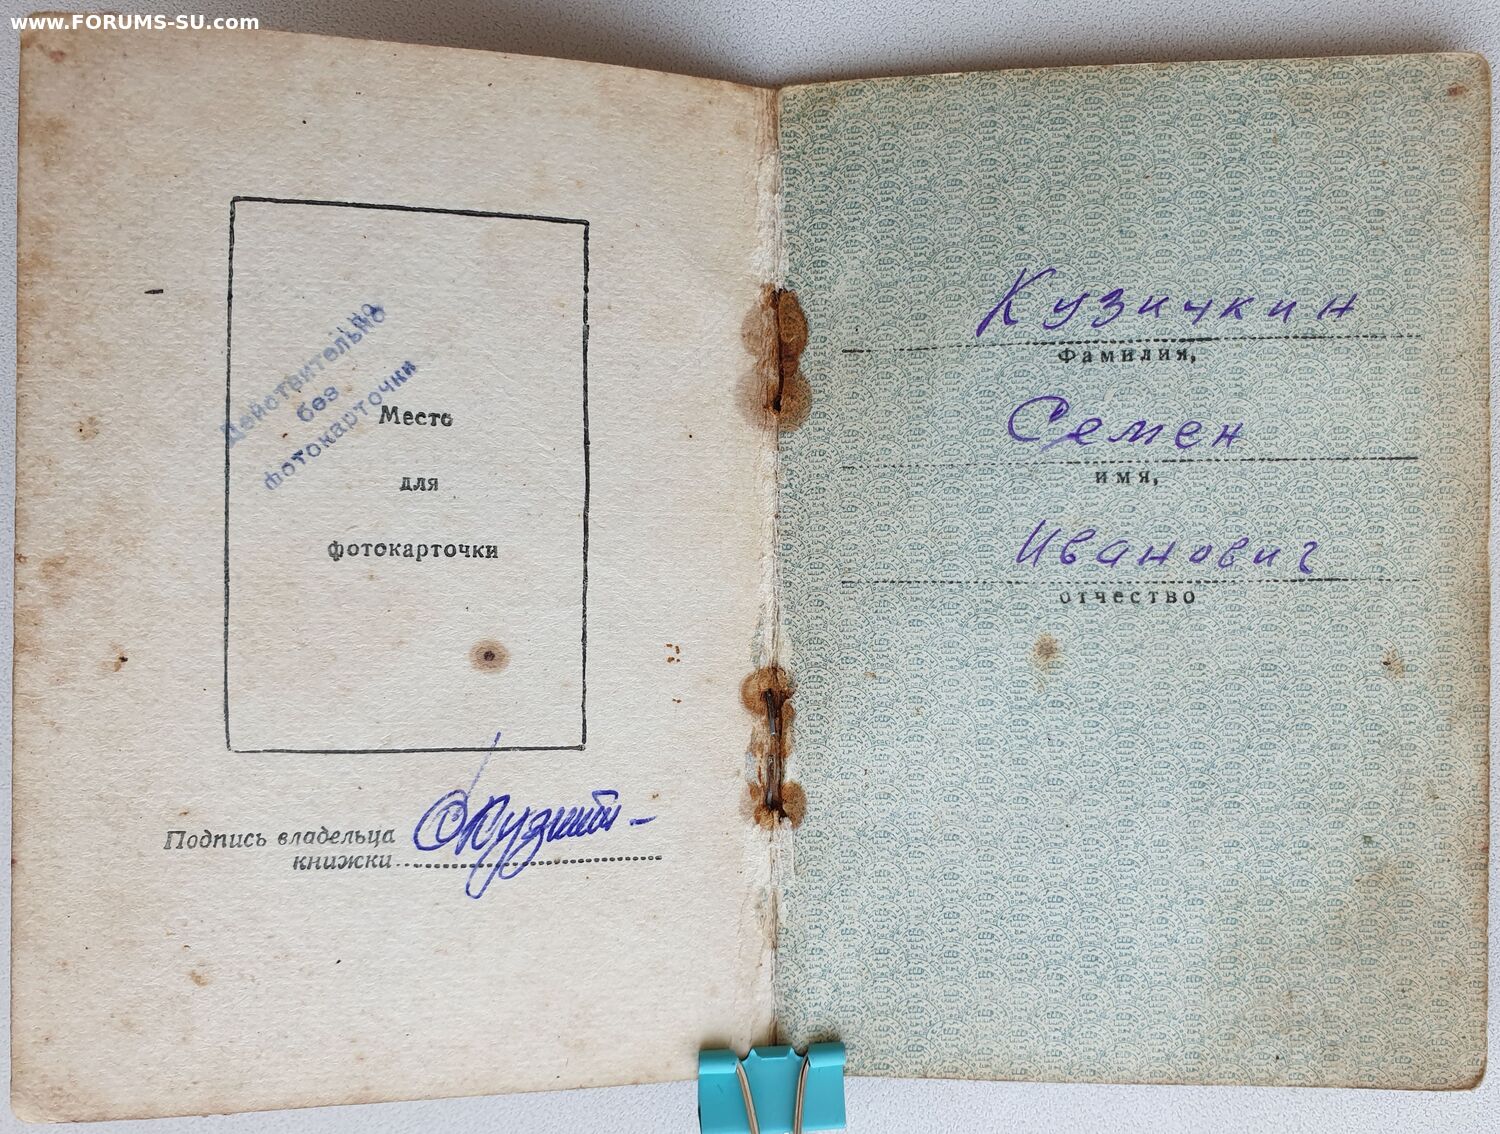 www.FORUMS-SU.com
Действительно
без
фотокарточки
Место
для
фотокарточки
Подпись владельца
книжки
Кузичкин
Фамилия,
Семен
имя,
Иванович
отчество